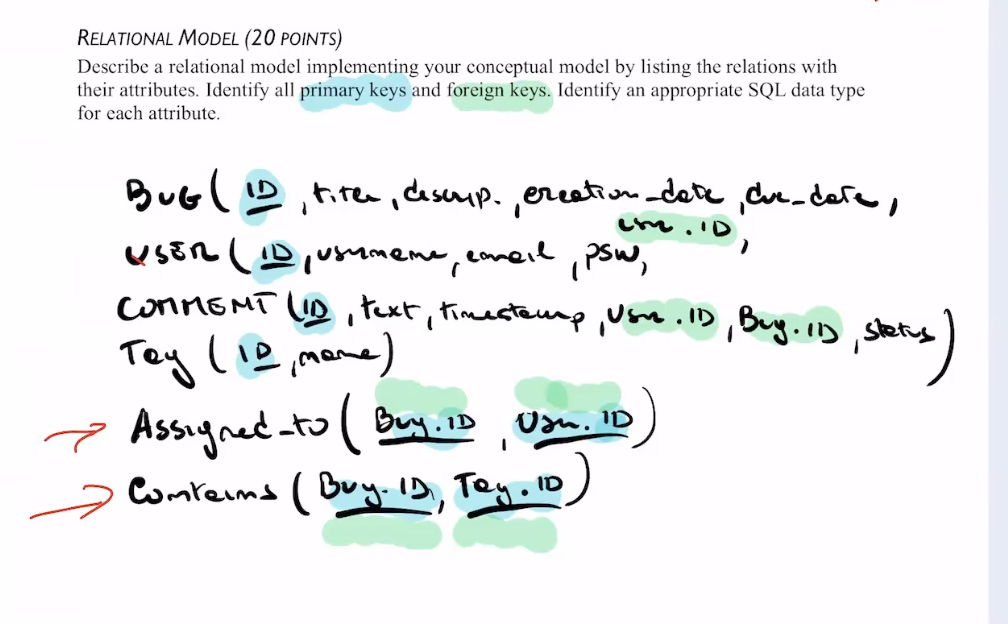 RELATIONAL MODEL (20 POINTS)
Describe a relational model implementing your conceptual model by listing the relations with
their attributes. Identify all primary keys and foreign keys. Identify an appropriate SQL data type
for each attribute.
BUG( ID, title, descrip., creation_date, due_date,
User.ID,
USER( ID, username, email, psw,
COMMENT (ID, text, timestamp, User.ID, Bug.ID, status)
Tag ( ID, name)
Assigned_to ( Bug.ID, User.ID)
Contains ( Bug.ID, Tag.ID)